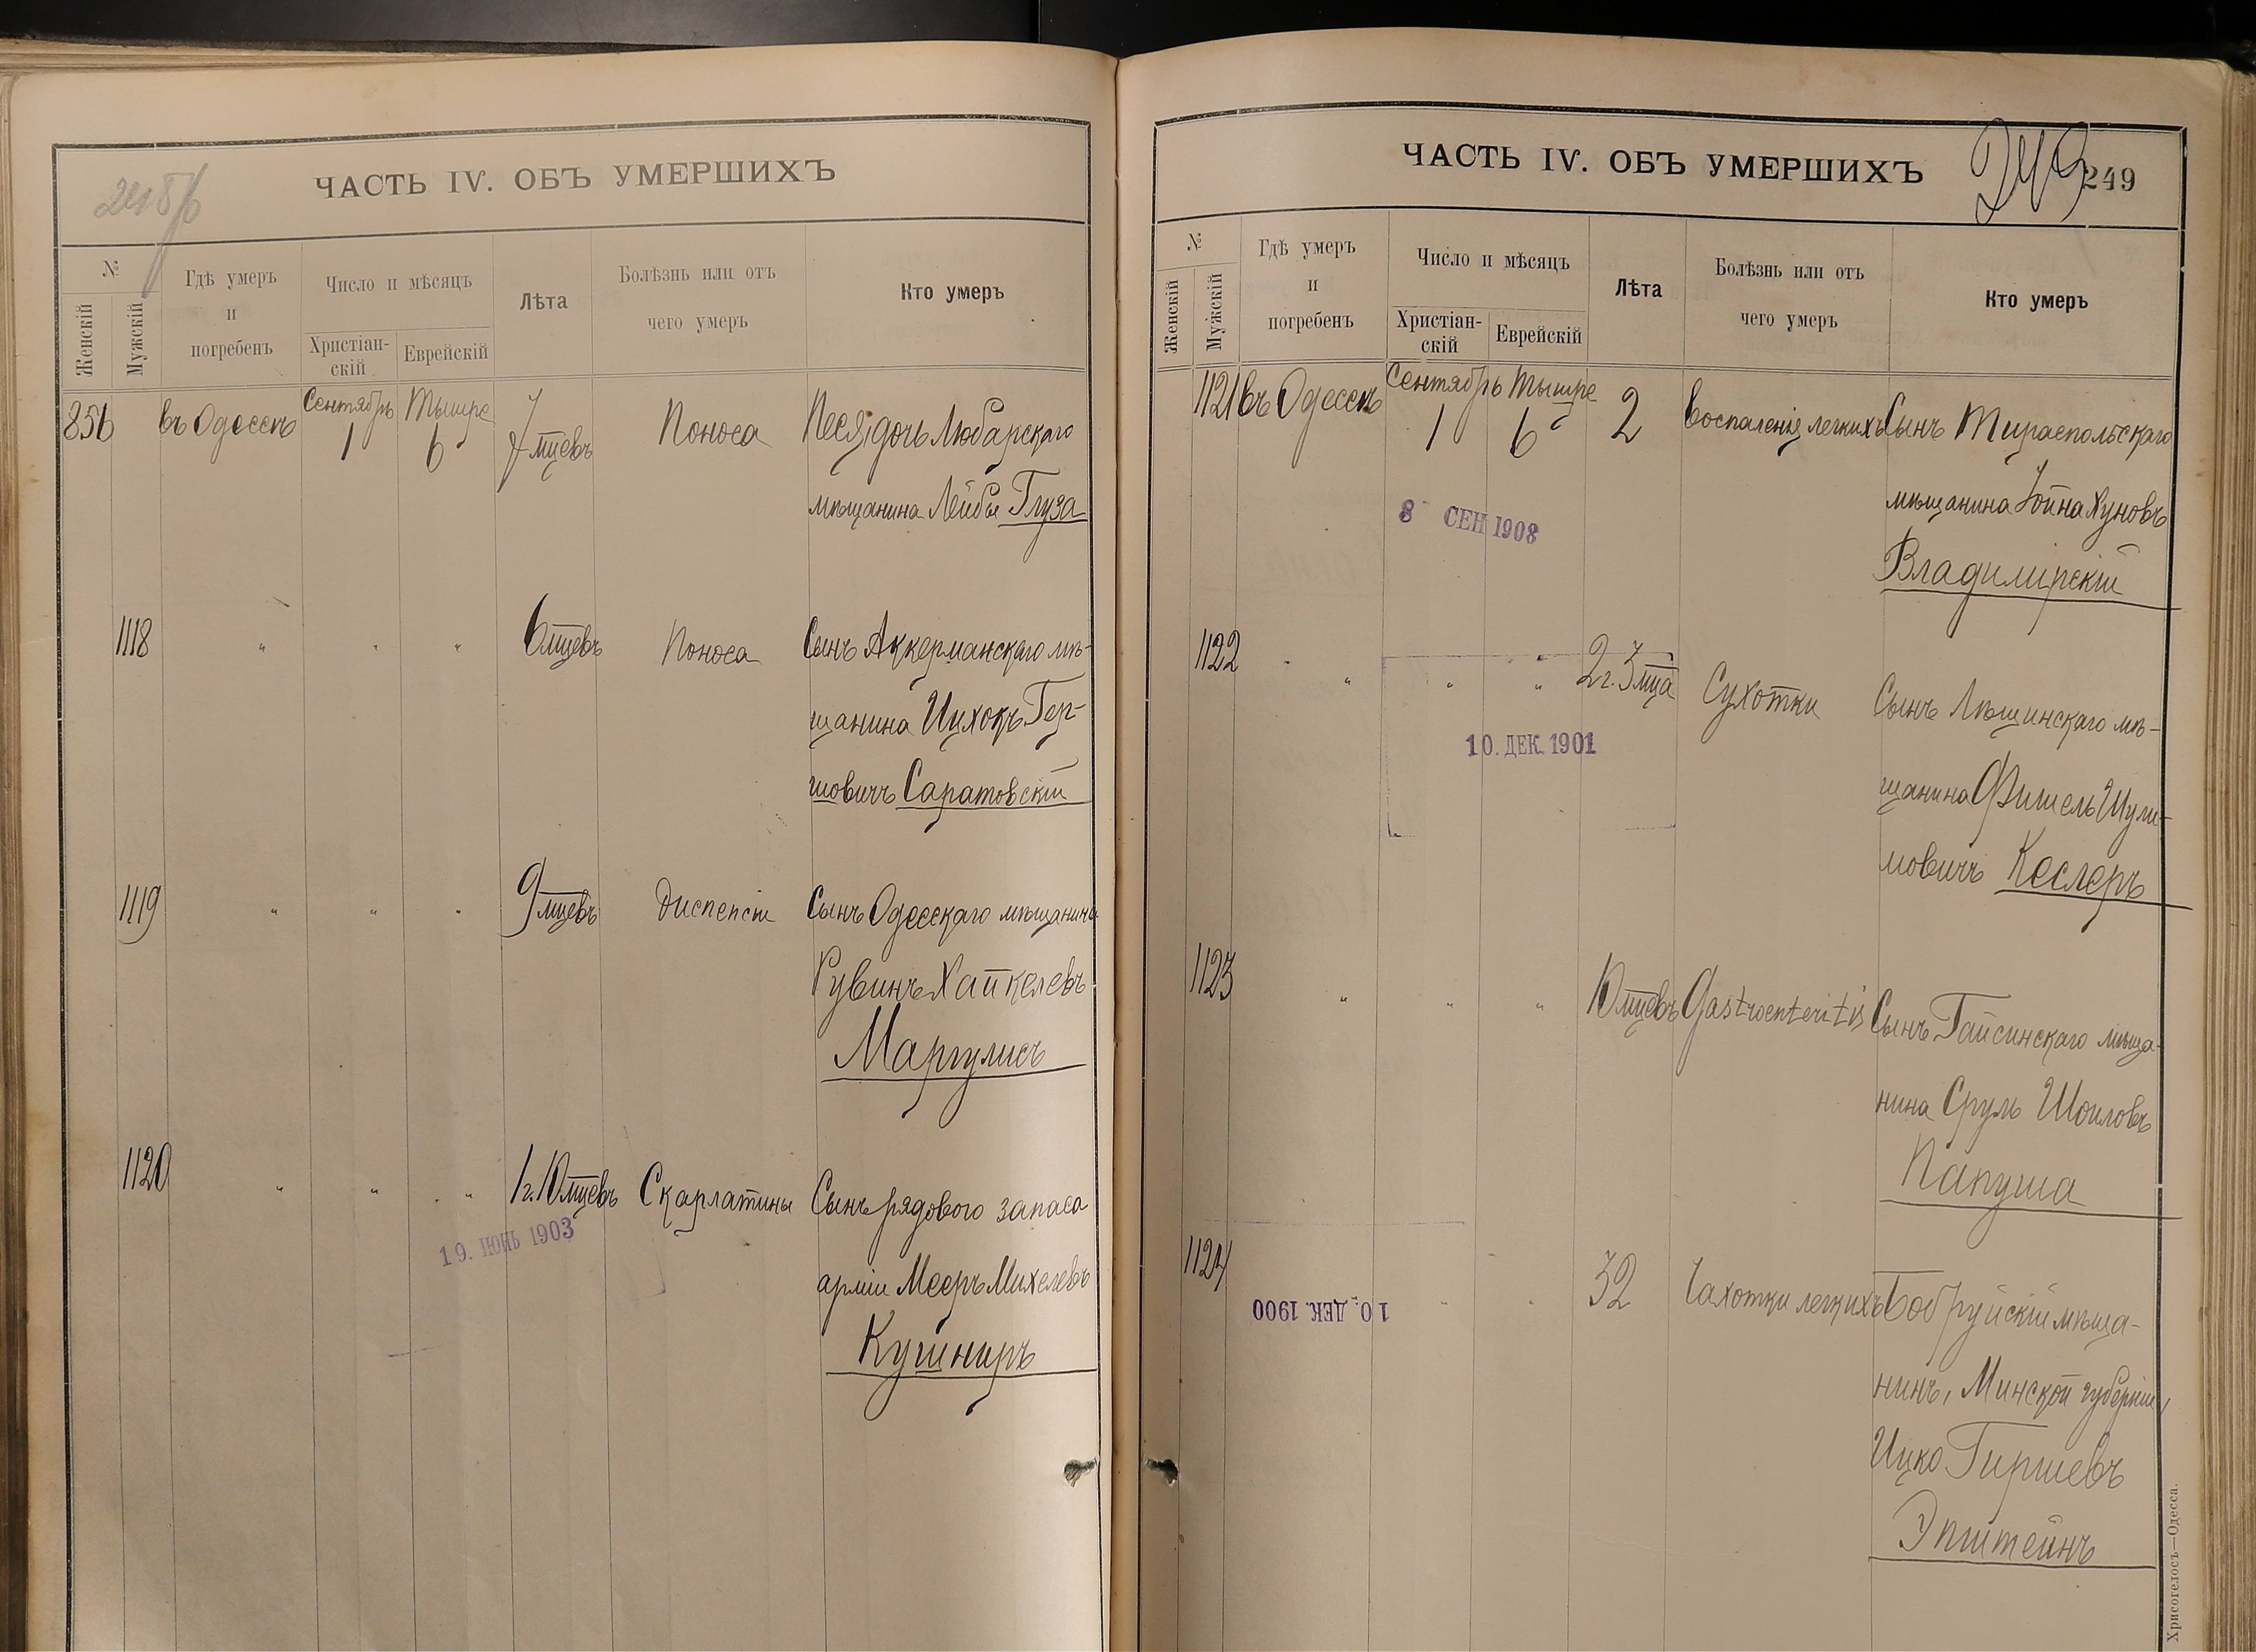 248/б
ЧАСТЬ IV. ОБЪ УМЕРШИХЪ
№
Женскій
Мужскій
Гдѣ умеръ
и
погребенъ
Число и мѣсяцъ
Христіан-
скій
Еврейскій
Лѣта
Болѣзнь или отъ
чего умеръ
Кто умеръ
856 въ Одессѣ Сентябрь 1 Тышре 6 7 мцевъ Поноса Песя, дочь Любарскаго
мѣщанина Лейбы Глуза
1118 " " " 6 мцевъ Поноса Сынъ Аккерманскаго мѣ-
щанина Ицхокъ Гер-
шовичъ Саратовскій
1119 " " " 9 мцевъ Диспепсіи Сынъ Одесскаго мѣщанина
Рувинъ Хайкелевъ
Маргулисъ
1120 " " " 1 г. 10 мцевъ Скарлатины Сынъ рядового запаса
19. ИЮНЬ 1903
арміи Мееръ Михелевъ
Кушниръ
ЧАСТЬ IV. ОБЪ УМЕРШИХЪ
249
249
№
Женскій
Мужскій
Гдѣ умеръ
и
погребенъ
Число и мѣсяцъ
Христіан-
скій
Еврейскій
Лѣта
Болѣзнь или отъ
чего умеръ
Кто умеръ
1121 въ Одессѣ Сентябрь 1 Тышре 6 2 Воспаленія легкихъ Сынъ Тираспольскаго
мѣщанина Іойна Хуновъ
8 СЕН 1908
Владимірскій
1122 " " " 2 г. 3 мца Сухотки Сынъ Лѣщинскаго мѣ-
10. ДЕК. 1901
щанина Фишель Шули-
мовичъ Кеслеръ
1123 " " " 10 мцевъ Gastroenteritis Сынъ Гайсинскаго мѣща-
нина Сруль Шоиловъ
Папуша
1124 " " " 32 Чахотки легкихъ Бобруйскій мѣща-
10. ДЕК. 1900
нинъ, Минской губерніи,
Ицко Гиршевъ
Эпштейнъ
Хрисогелосъ—Одесса.